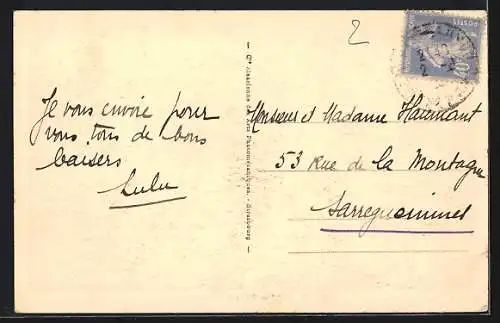 2
POSTES
Je vous envoie pour
vous tous de bons
baisers
Lulu
Cie Alsacienne des Arts Photomécaniques. - Strasbourg
Monsieur et Madame Haumant
53 Rue de la Montagne
Sarreguemines